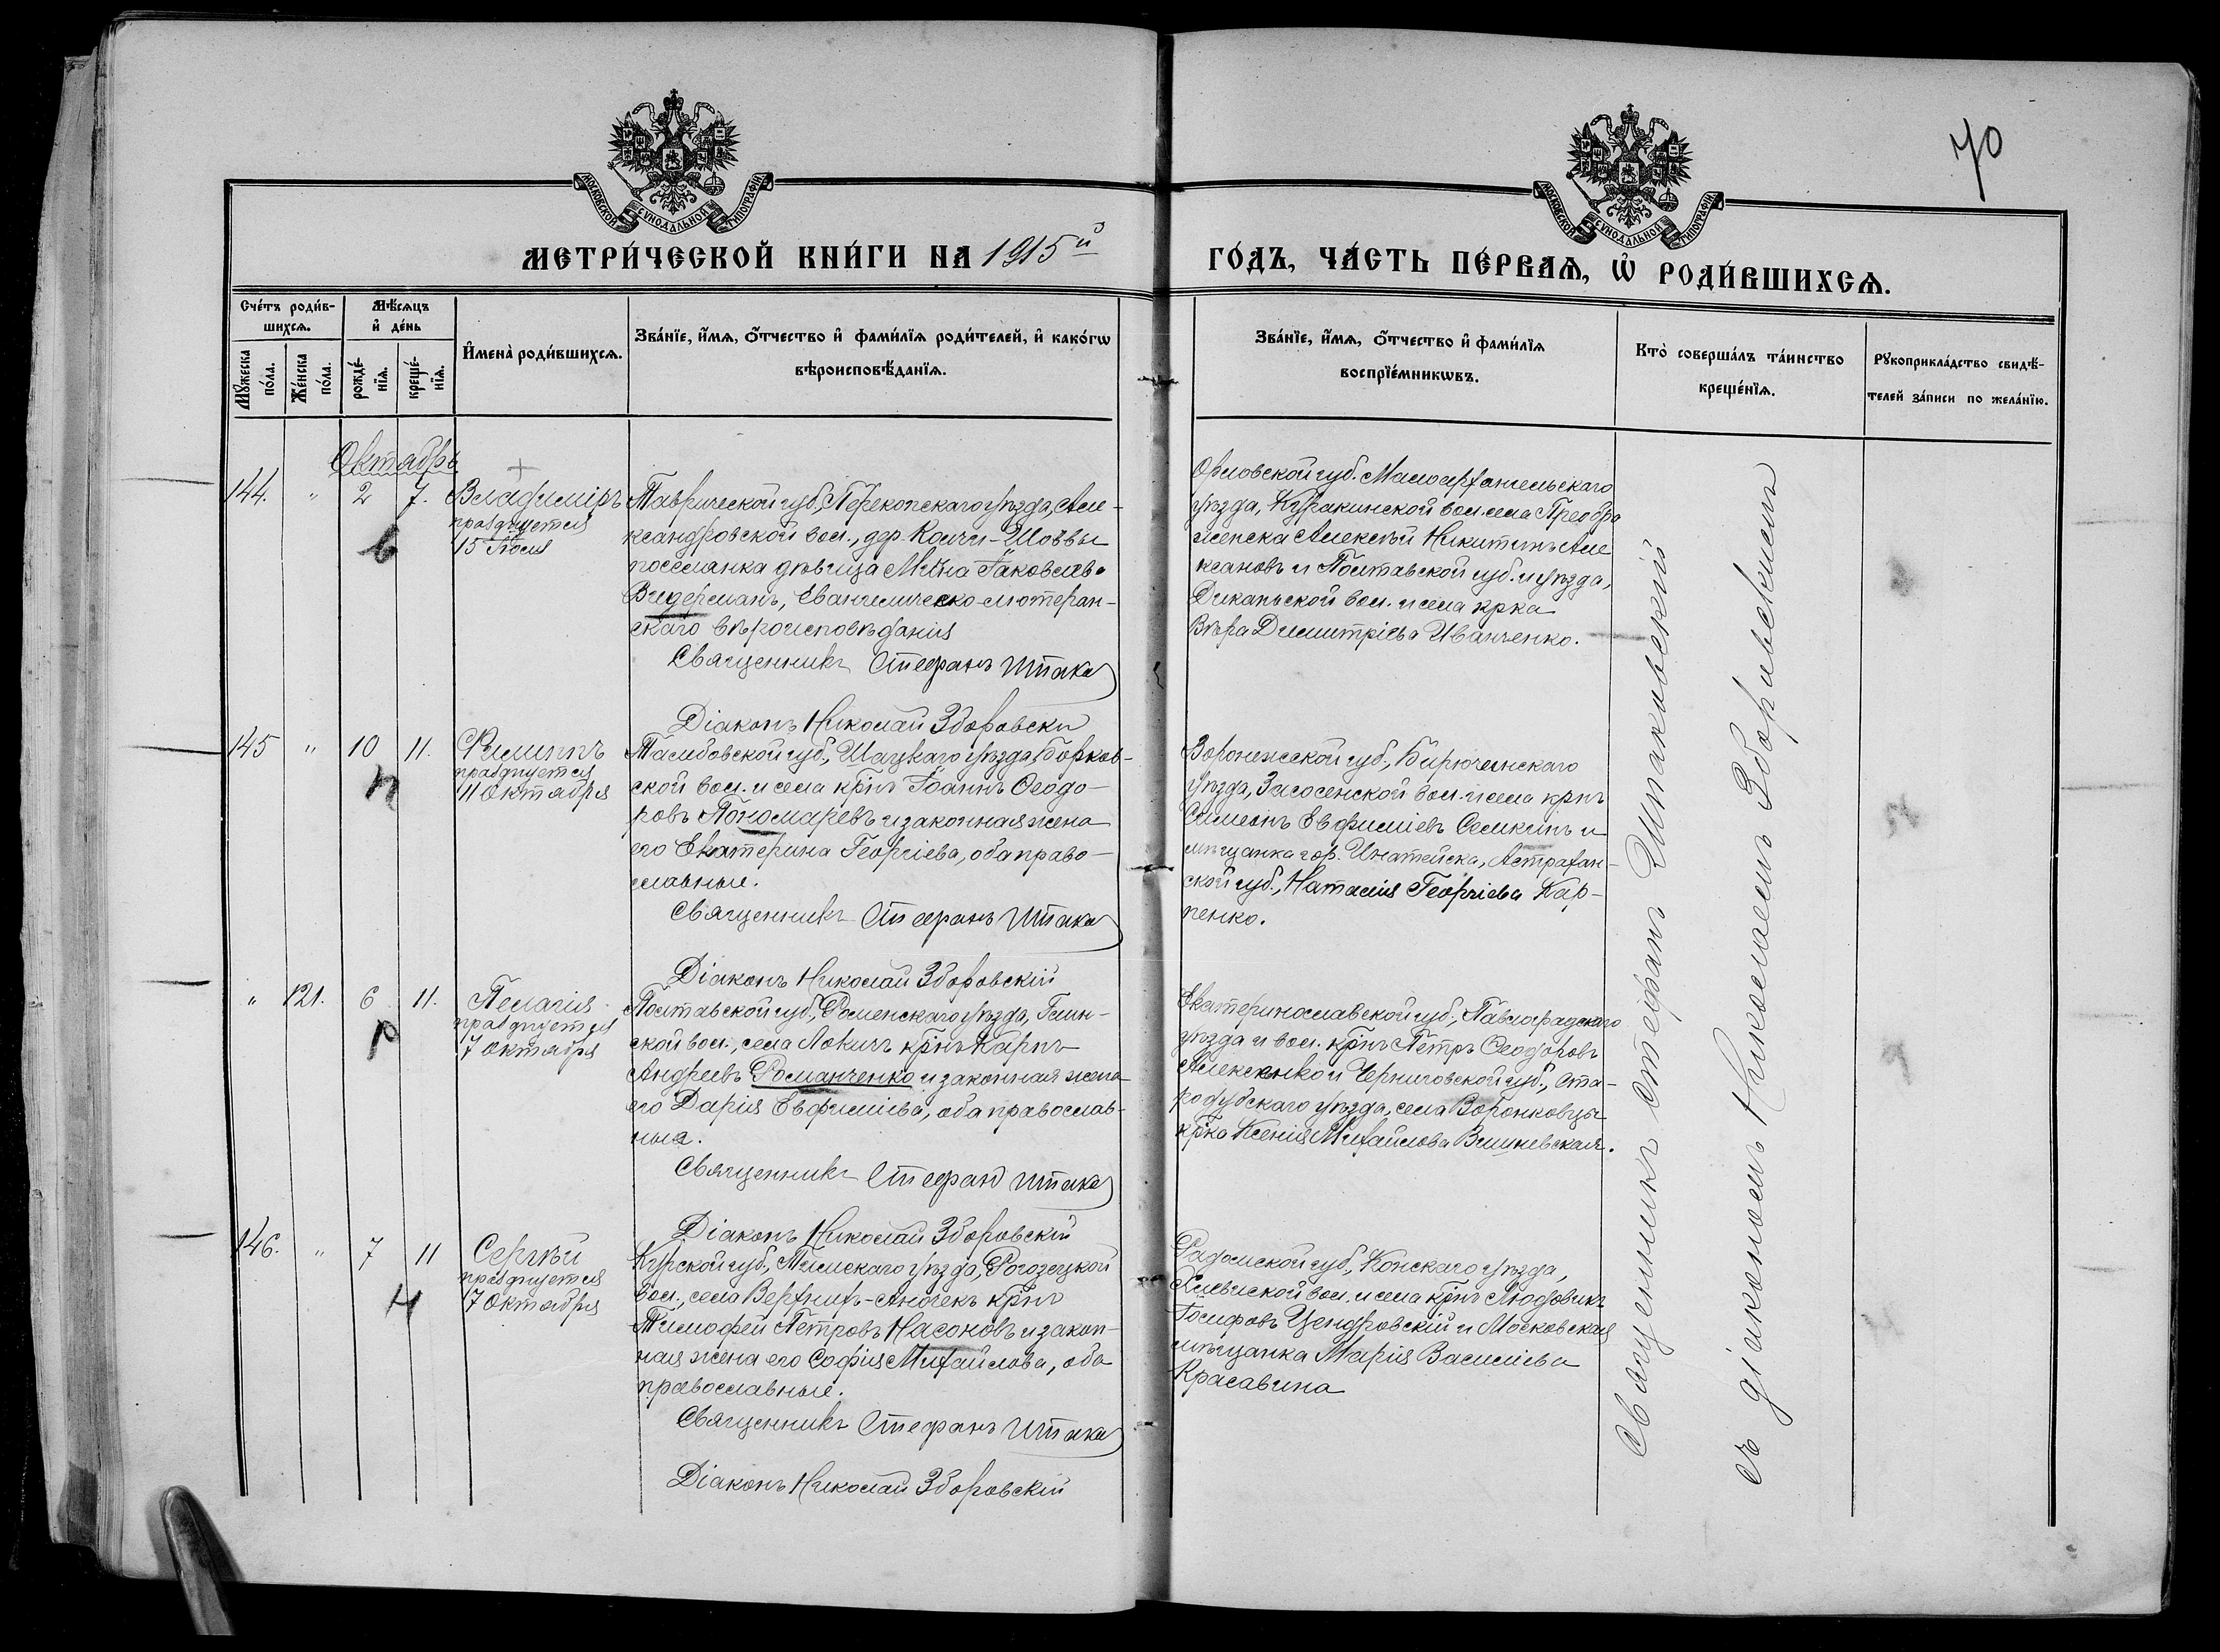 70
МОСКОВСКОЙ СѴНОДАЛЬНОЙ ТИПОГРАФІИ
МОСКОВСКОЙ СѴНОДАЛЬНОЙ ТИПОГРАФІИ
МЕТРИ́ЧЕСКОЙ КНИ́ГИ НА 1915й
ГО́ДЪ, ЧА́СТЬ ПЕ́РВАѦ, Ѽ РОДИ́ВШИХСѦ.
Сче́тъ роди́в-
шихсѧ.
Мꙋжеска по́ла.
Же́нска по́ла.
Мѣ́сяцъ
и҆ де́нь
рожде́-
нїѧ.
креще́-
нїѧ.
И҆мена̀ роди́вшихсѧ.
Зва́нїе, и҆́мѧ, ѻ҆́тчество и҆ фами́лїѧ роди́телей, и҆ како́гѡ
вѣроисповѣ́данїѧ.
Зва́нїе, и҆́мѧ, ѻ҆́тчество и҆ фами́лїѧ
воспрїе́мникѡвъ.
Кто̀ соверша́лъ та́инство
креще́нїѧ.
Рꙋкоприкла́дство свидѣ́-
телей за́писи по жела́нїю.
Октябрь
144. " 2 7. Владиміръ
празднуется
15 Іюля
в
Таврической губ., Перекопскаго уѣзда, Але-
ксандровской вол., дер. Колчи-
поселянка дѣвица Мина Іаковлева
Видерманъ, Евангелическо-лютеран-
скаго вѣроисповѣданія
Священникъ Стефанъ Шпака
Діаконъ Николай Зборовски
Орловской губ. Малоархангельскаго
уѣзда, Куракинской вол. села Преобра
женска Алексѣй Никитинъ Але
ксановъ и Полтавской губ. и уѣзда,
Диканьской вол. и села крка
Вѣра Димитріева Иванченко.
145 " 10 11. Филиппъ
празднуется
11 Октября
п
Тамбовской губ., Шацкаго уѣзда, Борков-
ской вол. и села крнъ Іоаннъ Ѳеодо-
ровъ Пономаревъ и законная жена
его Екатерина Георгіева, оба право-
славные.
Священникъ Стефанъ Шпака
Діаконъ Николай Зборовскій
Воронежской губ., Бирюченскаго
уѣзда, Засосенской вол. и села крнъ
Симеонъ Евфиміевъ Семкинъ и
мѣщанка гор. Астрахан-
ской губ., Наталія Георгіева Кар-
пенко.
" 121. 6 11. Пелагія
празднуется
7 октября
р
Полтавской губ., Роменскаго уѣзда, Глин-
ской вол., села крнъ Карпъ
Андреевъ Романченко и законная жена
его Дарія Евфиміева, оба православ-
ные.
Священникъ Стефанъ Шпака
Діаконъ Николай Зборовскій
Екатеринославской губ., Павлоградскаго
уѣзда и вол. крнъ Петръ Ѳеодоровъ
Алексенко и Черниговской губ., Ста-
родубскаго уѣзда, села Воронковцы
крка Ксенія Михайлова Вишневская.
146. " 7 11 Сергѣй
празднуется
7 Октября
н
Курской губ., Тимскаго уѣзда, Рогозецкой
вол., села крнъ
Тимофей Петровъ Насоновъ и закон-
ная жена его Софія Михайлова, оба
православные.
Священникъ Стефанъ Шпака
Діаконъ Николай Зборовскій
Радомской губ., Конскаго уѣзда,
Хлевиской вол. и села крнъ Людовикъ
Іосифовъ Цендровскій и Московская
мѣщанка Марія Василіева
Красавина
Священникъ Стефанъ Шпаковскій
съ діакономъ Николаемъ Зборовскимъ